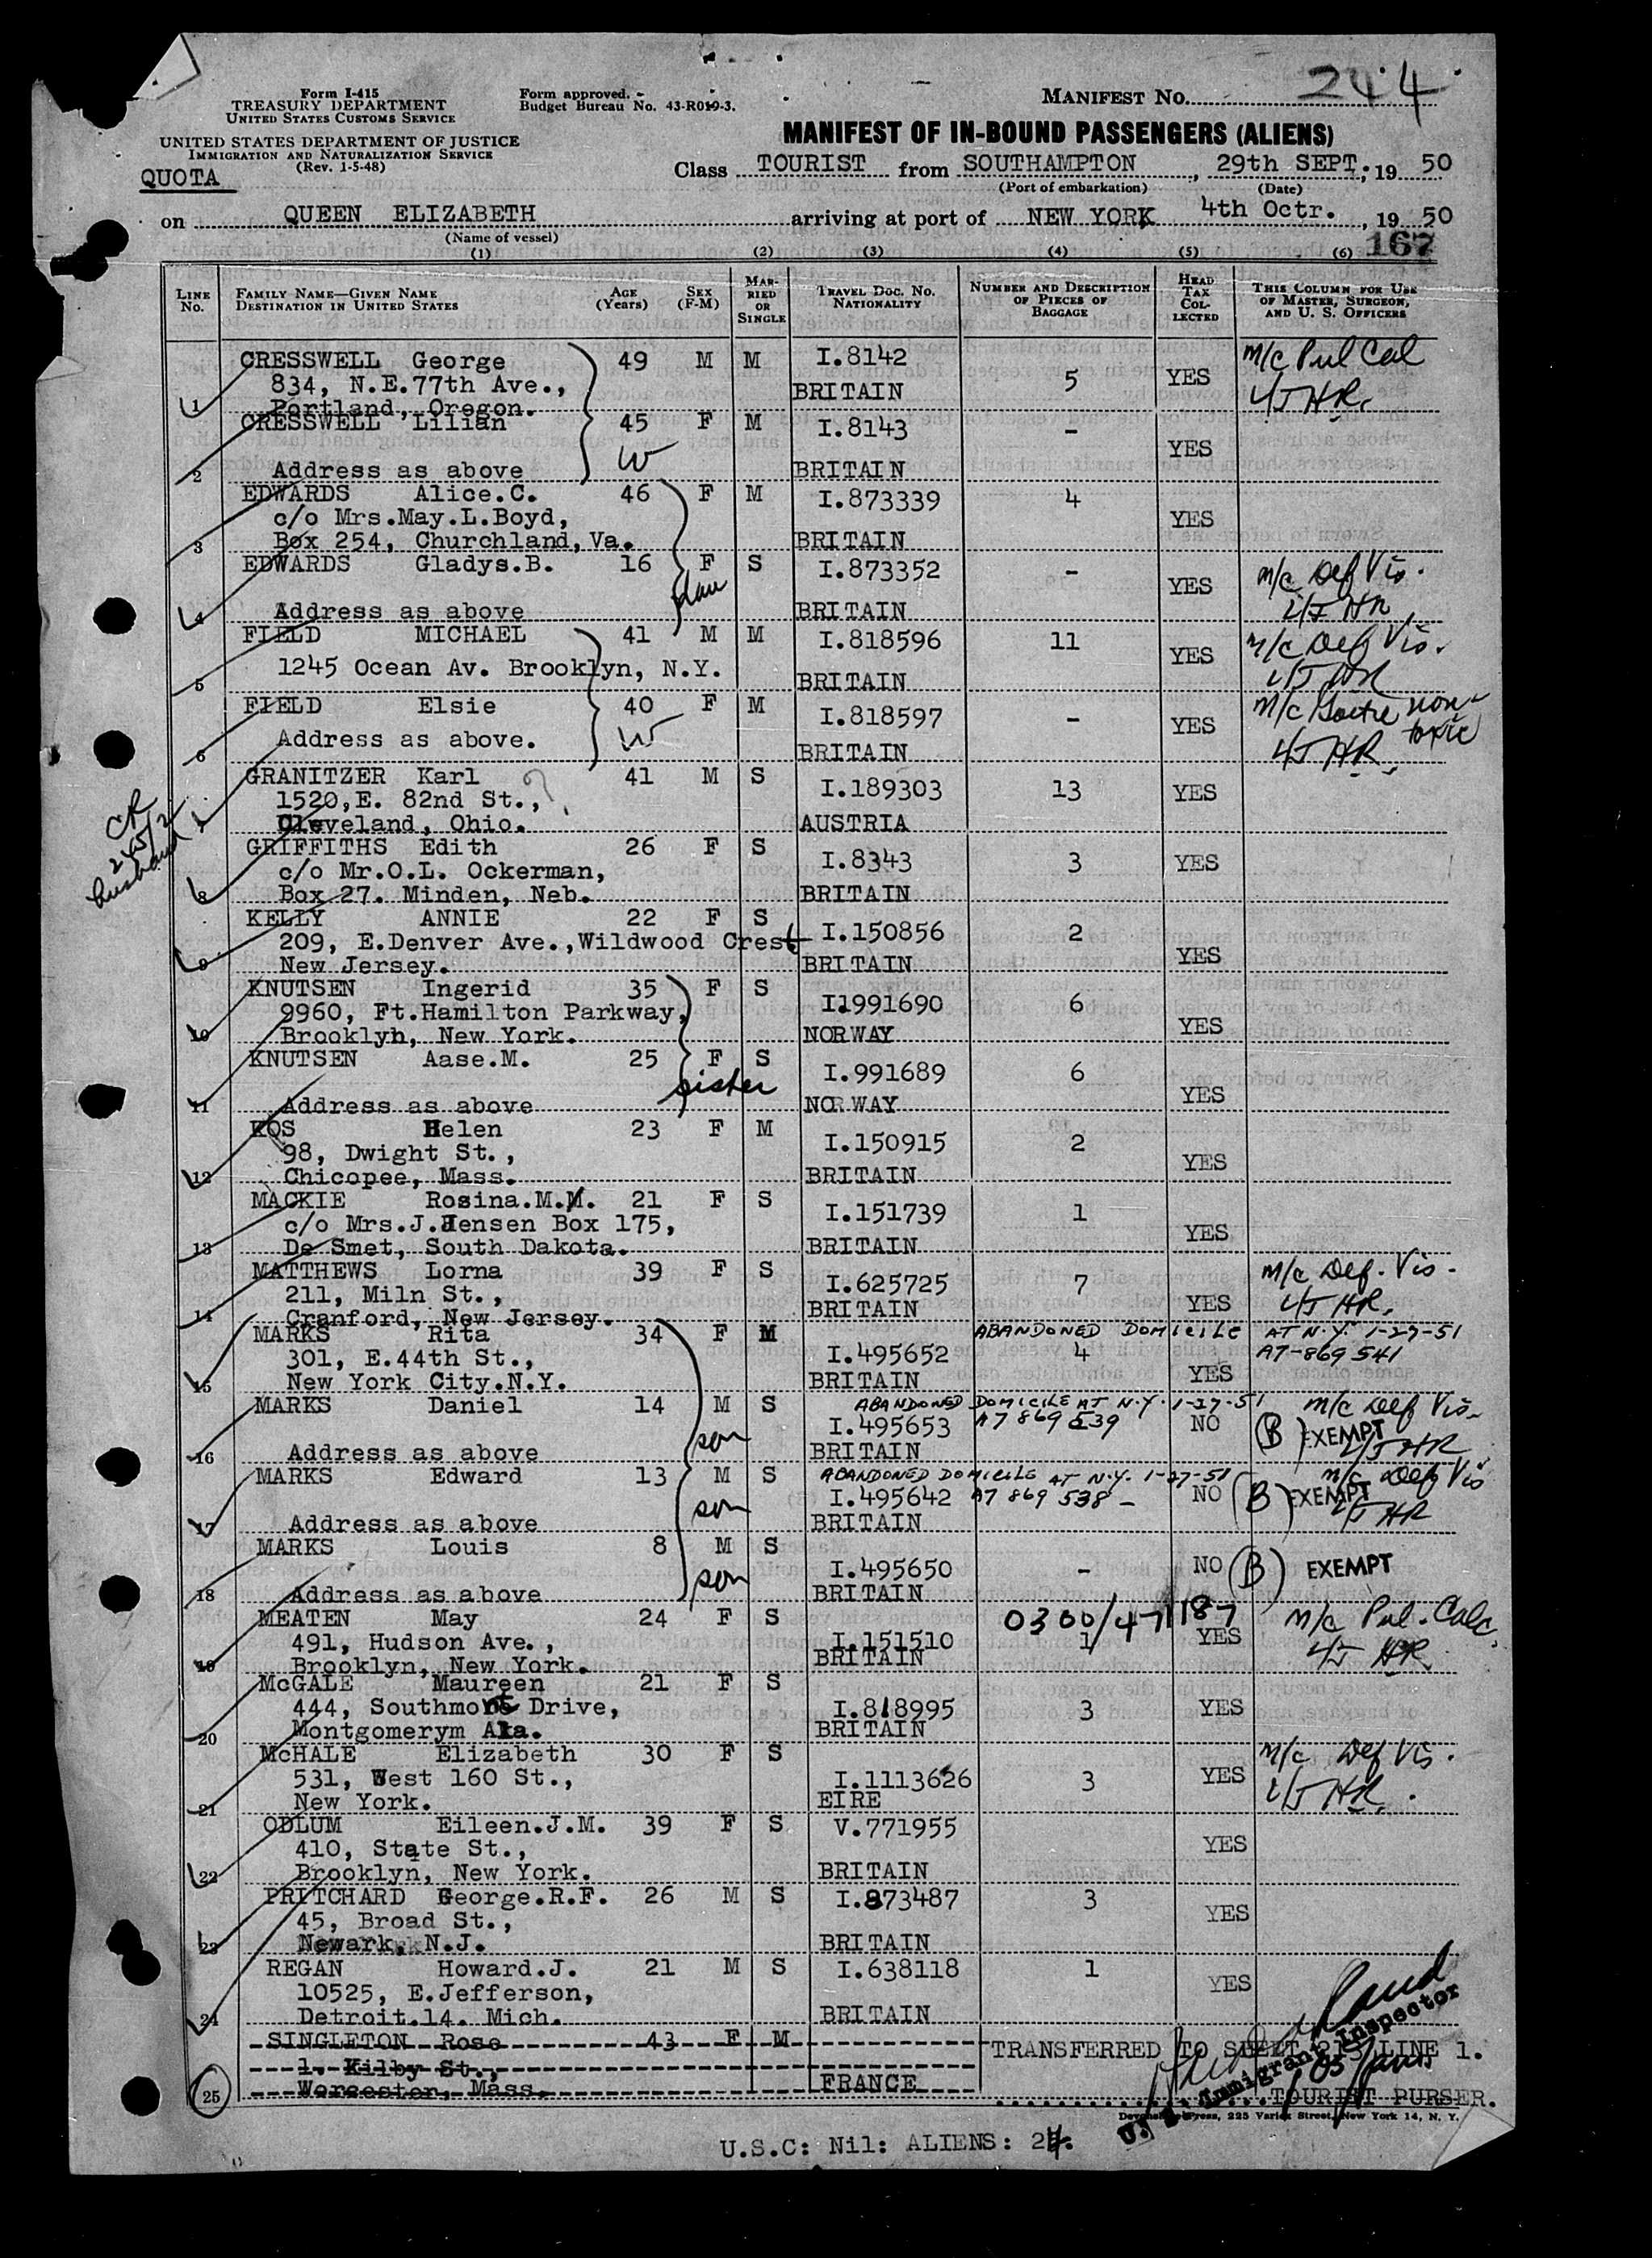 Form I-415
TREASURY DEPARTMENT
UNITED STATES CUSTOMS SERVICE
UNITED STATES DEPARTMENT OF JUSTICE
IMMIGRATION AND NATURALIZATION SERVICE
(Rev. 1-5-48)
QUOTA
Form approved.
Budget Bureau No. 43-R019-3.
MANIFEST No. 244
MANIFEST OF IN-BOUND PASSENGERS (ALIENS)
Class TOURIST from SOUTHAMPTON, 29th SEPT. 19 50
(Port of embarkation) (Date)
on QUEEN ELIZABETH arriving at port of NEW YORK 4th Octr., 19 50
(Name of vessel)
167
(1) (2) (3) (4) (5) (6)
LINE No. FAMILY NAME—GIVEN NAME DESTINATION IN UNITED STATES AGE (Years) SEX (F-M) MARRIED OR SINGLE TRAVEL DOC. NO. NATIONALITY NUMBER AND DESCRIPTION OF PIECES OF BAGGAGE HEAD TAX COLLECTED THIS COLUMN FOR USE OF MASTER, SURGEON, AND U. S. OFFICERS
CRESSWELL George 49 M M I.8142 m/c Pul Cal
834, N.E.77th Ave., BRITAIN 5 YES HR.
1 Portland, Oregon.
CRESSWELL Lilian 45 F M I.8143 -
W YES
2 Address as above BRITAIN
EDWARDS Alice.C. 46 F M I.873339 4
c/o Mrs.May.L.Boyd, YES
3 Box 254, Churchland,Va. BRITAIN
EDWARDS Gladys.B. 16 F S I.873352 - YES m/c Def Vis.
dau HR
4 Address as above BRITAIN
FIELD MICHAEL 41 M M I.818596 11 YES m/c Def Vis.
1245 Ocean Av. Brooklyn, N.Y. HR
5 BRITAIN
FIELD Elsie 40 F M I.818597 - YES m/c Goitre non-toxic
Address as above. W HR.
6 BRITAIN
GRANITZER Karl ? 41 M S I.189303 13 YES
1520,E. 82nd St.,
Cleveland, Ohio. AUSTRIA
CR
husband
GRIFFITHS Edith 26 F S I.8343 3 YES
c/o Mr.O.L. Ockerman,
8 Box 27. Minden, Neb. BRITAIN
KELLY ANNIE 22 F S I.150856 2
209, E.Denver Ave.,Wildwood Crest YES
9 New Jersey. BRITAIN
KNUTSEN Ingerid 35 F S I.1991690 6
9960, Ft.Hamilton Parkway, YES
10 Brooklyn, New York. NORWAY
KNUTSEN Aase.M. 25 F S I.991689 6
sister YES
11 Address as above NORWAY
KOS Helen 23 F M I.150915 2
98, Dwight St., YES
12 Chicopee, Mass. BRITAIN
MACKIE Rosina.M.M. 21 F S I.151739 1
c/o Mrs.J.Jensen Box 175, YES
13 De Smet, South Dakota. BRITAIN
MATTHEWS Lorna 39 F S I.625725 7 m/c Def. Vis.
211, Miln St., YES HR.
14 Cranford, New Jersey. BRITAIN
MARKS Rita 34 F M ABANDONED DOMICILE AT N.Y. 1-27-51
301, E.44th St., I.495652 4 YES A7-869 541
15 New York City.N.Y. BRITAIN
MARKS Daniel 14 M S ABANDONED DOMICILE AT N.Y. 1-27-51 m/c Def Vis.
son I.495653 A7 869 539 NO (B) EXEMPT HR
16 Address as above BRITAIN
MARKS Edward 13 M S ABANDONED DOMICILE AT N.Y. 1-27-51 m/c Def Vis
son I.495642 A7 869 538 - NO (B) EXEMPT HR
17 Address as above BRITAIN
MARKS Louis 8 M S I.495650 - NO (B) EXEMPT
son
18 Address as above BRITAIN
MEATEN May 24 F S 0300/471187 m/c Pul. Calc.
491, Hudson Ave., I.151510 1 YES HR
19 Brooklyn, New York. BRITAIN
McGALE Maureen 21 F S
444, Southmont Drive, I.818995 3 YES
20 Montgomerym Ala. BRITAIN
McHALE Elizabeth 30 F S m/c Def Vis.
531, West 160 St., I.1113626 3 YES HR.
21 New York. EIRE
ODLUM Eileen.J.M. 39 F S V.771955
410, State St., YES
22 Brooklyn, New York. BRITAIN
PRITCHARD George.R.F. 26 M S I.873487 3
45, Broad St., YES
23 Newark, N.J. BRITAIN
REGAN Howard.J. 21 M S I.638118 1
10525, E.Jefferson, YES
24 Detroit.14. Mich. BRITAIN
SINGLETON Rose 43 F M TRANSFERRED TO SHEET 213 LINE 1.
1, Kilby St.,
25 Worcester, Mass. FRANCE
U. S. Immigrant Inspector
TOURIST PURSER.
Press, 225 Varick Street, New York 14, N. Y.
U.S.C: Nil: ALIENS: 24.